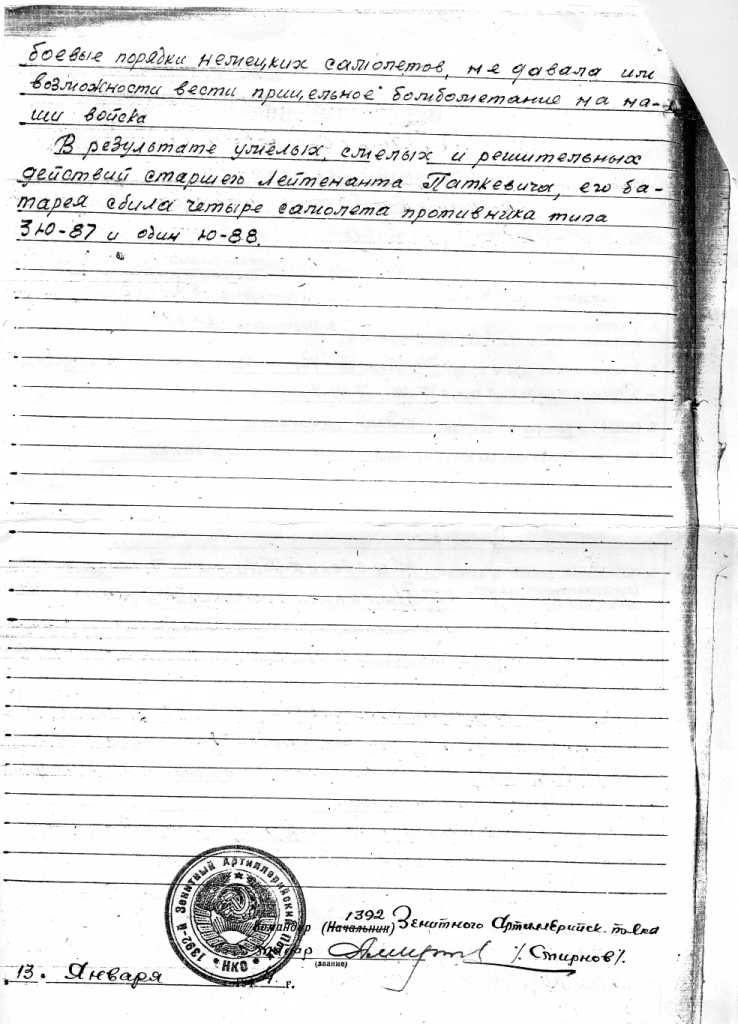 боевые порядки немецких самолетов, не давала им
возможности вести прицельное бомбометание на на-
ши войска
В результате умелых, смелых и решительных
действий старшего Лейтенанта Паткевича, его ба-
тарея сбила четыре самолета противника типа
3Ю-87 и один Ю-88.
1392-й Зенитный Артиллерийский Полк
НКО
1392
Командир (Начальник) Зенитного Артиллерийск. полка
/Смирнов/.
(звание)
13. Января г.